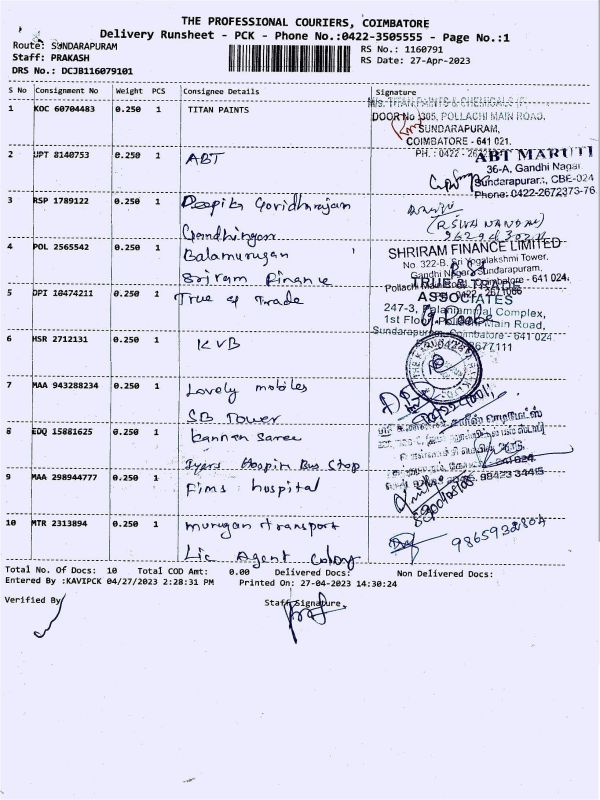 THE PROFESSIONAL COURIERS, COIMBATORE
Delivery Runsheet - PCK - Phone No.:0422-3505555 - Page No.:1
Route: SUNDARAPURAM
RS No.: 1160791
Staff: PRAKASH
RS Date: 27-Apr-2023
DRS No.: DCJB116079101
S No Consignment No Weight PCS Consignee Details Signature
1 KOC 60704483 0.250 1 TITAN PAINTS
M/s. TITAN PAINTS & CHEMICALS
DOOR No 305, POLLACHI MAIN ROAD,
SUNDARAPURAM,
COIMBATORE - 641 021.
PH. : 0422 -
2 UPT 8140753 0.250 1 ABT
ABT MARUTI
36-A, Gandhi Nagar
Sundarapuram, CBE-024
Phone: 0422-2672373-76
3 RSP 1789122 0.250 1 Deepika Govidharajan
Gandhingar
(R.SIVA NANDAM)
4 POL 2565542 0.250 1 Balamurugan
Sriram Finance
SHRIRAM FINANCE LIMITED
No. 322-B, Sri Yogalakshmi Tower,
Gandhi Nagar, Sundarapuram,
Pollachi Main Road, Coimbatore - 641 024.
5 DPI 10474211 0.250 1 True of Trade
TRUE & TRADE
ASSOCIATES
247-3, Palaniammal Complex,
1st Floor, Pollachi Main Road,
Sundarapuram, Coimbatore - 641 024.
6 HSR 2712131 0.250 1 KVB
7 MAA 943288234 0.250 1 Lovely mobiles
SB Tower
8 EDQ 15881625 0.250 1 bannari saree
Iyers Hospin Bus Stop
9 MAA 298944777 0.250 1 Fims hospital
98423 34415
10 MTR 2313894 0.250 1 murugan transport
Lic Agent colony
9865932804
Total No. Of Docs: 10 Total COD Amt: 0.00 Delivered Docs: Non Delivered Docs:
Entered By :KAVIPCK 04/27/2023 2:28:31 PM Printed On: 27-04-2023 14:30:24
Verified By
Staff Signature.